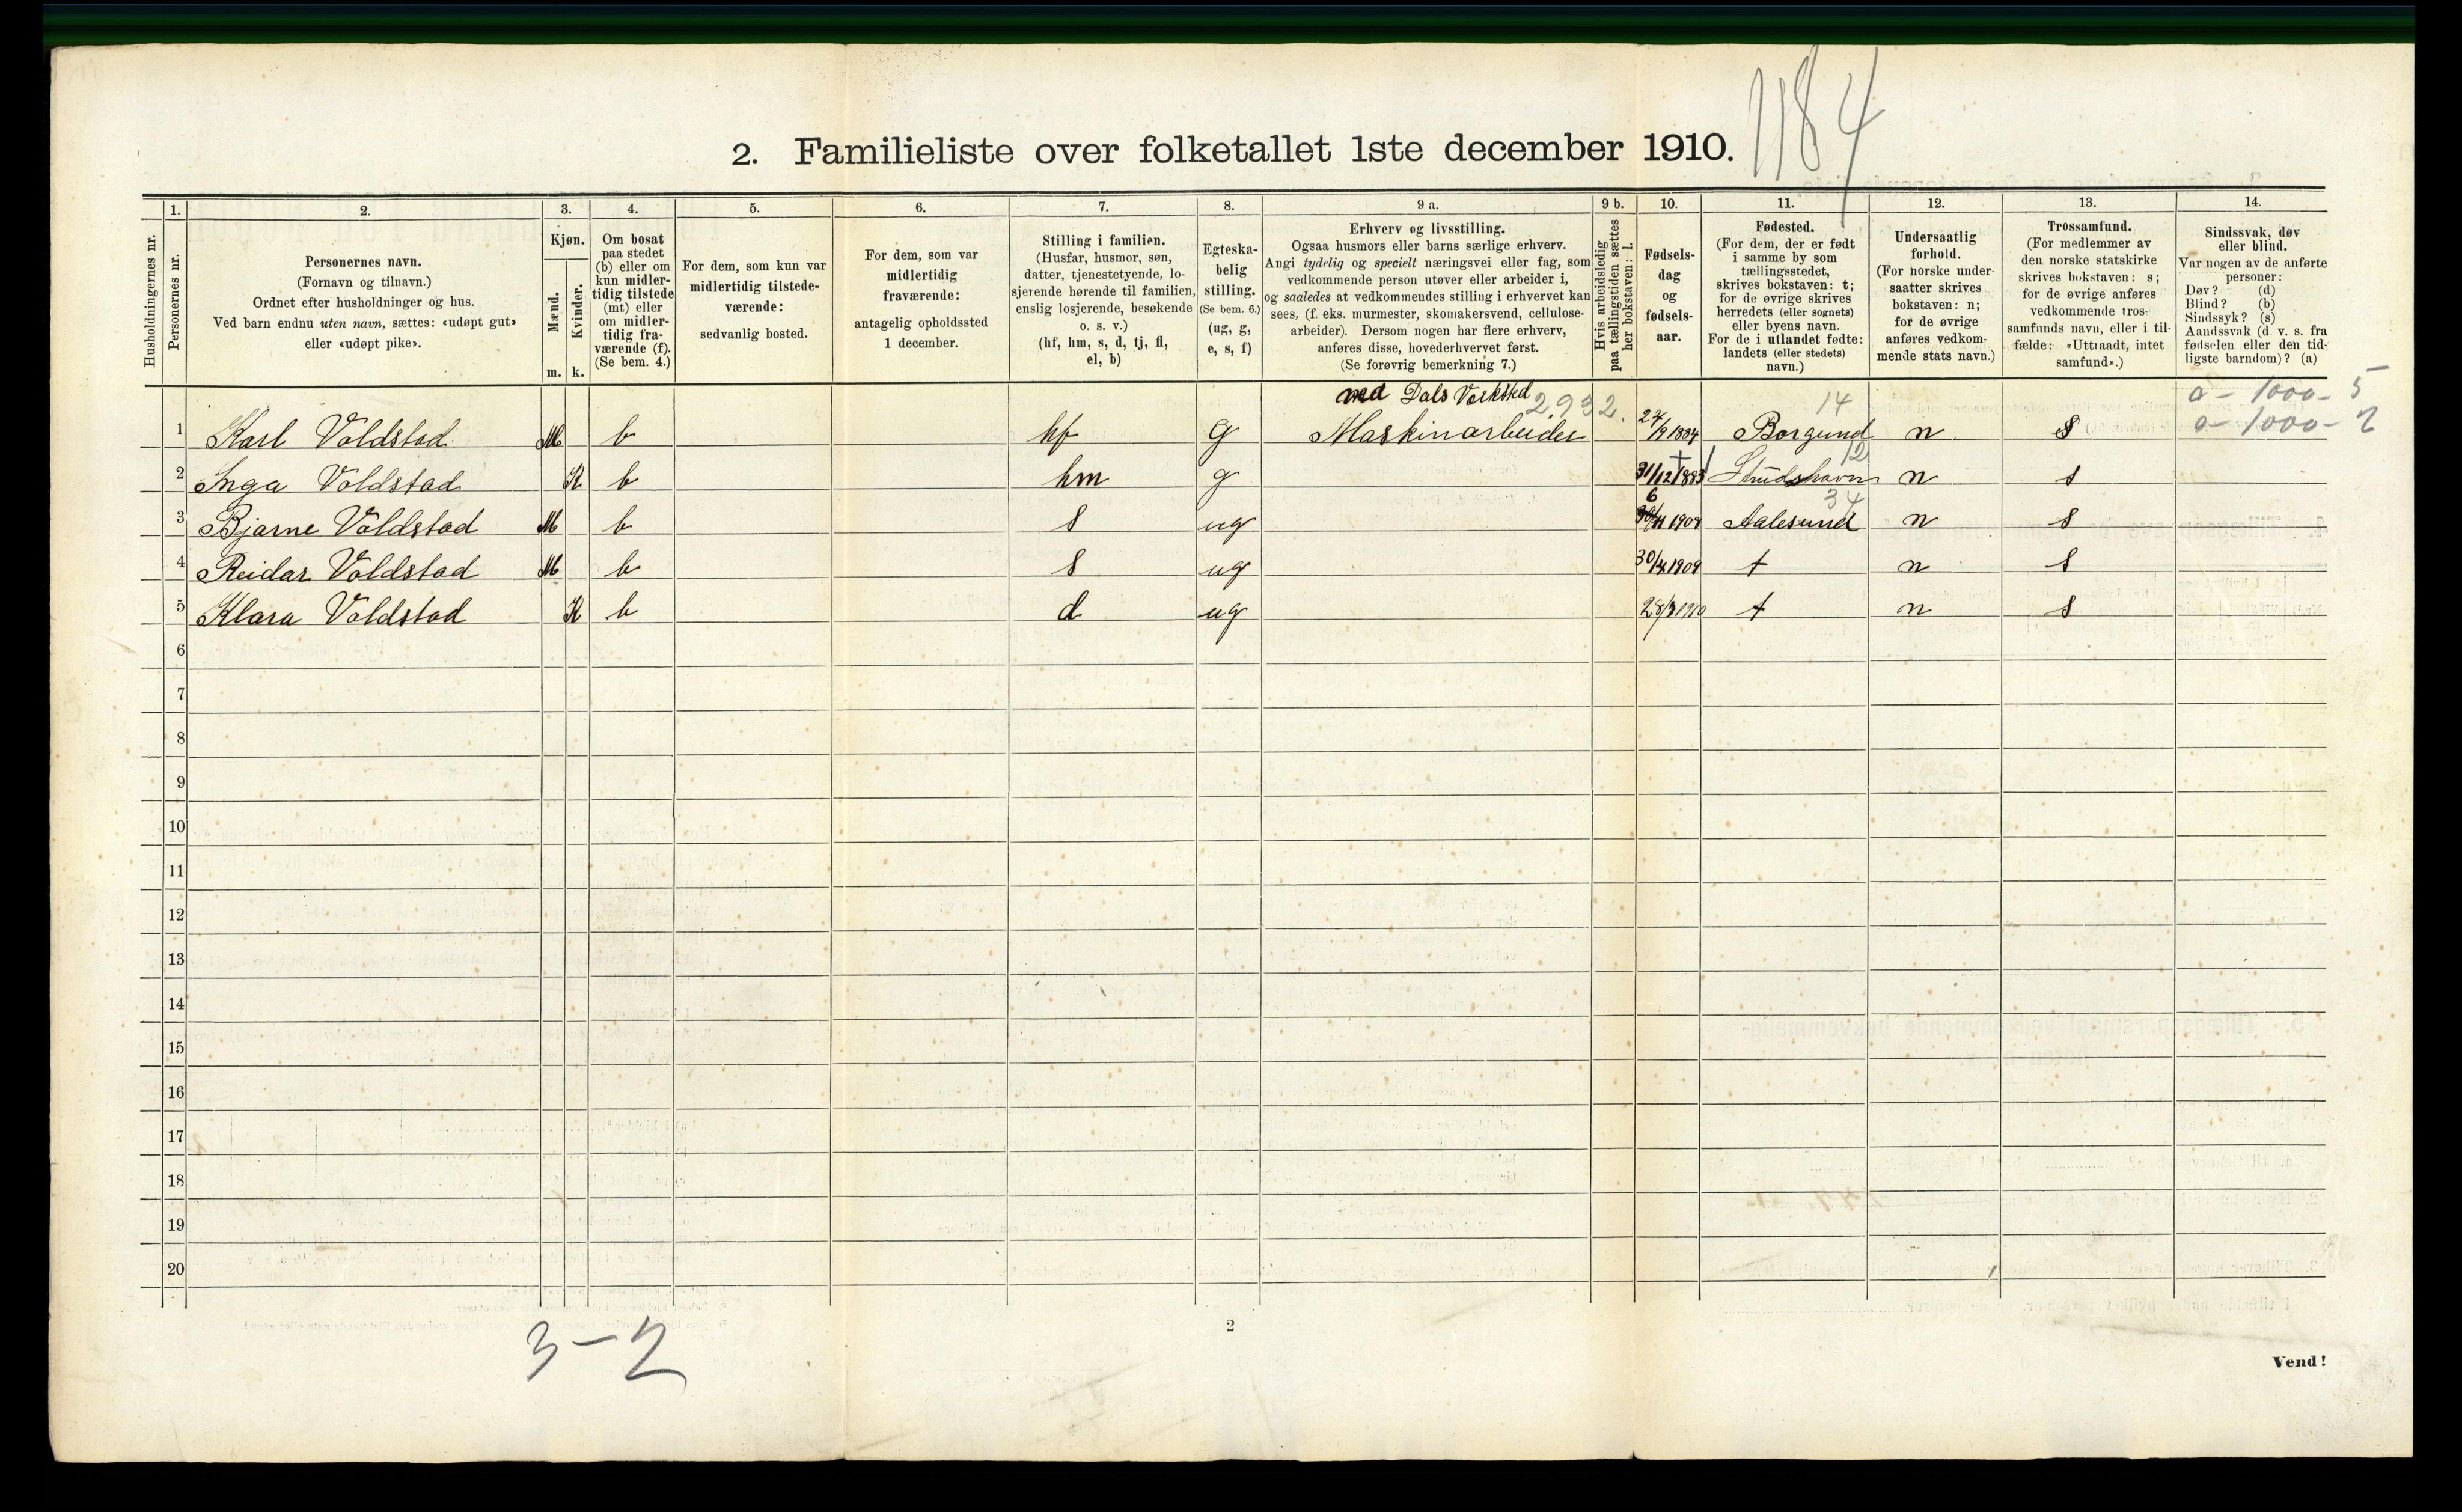 1184
2. Familieliste over folketallet 1ste december 1910.
Husholdningernes nr.
1.
Personernes nr.
2.
Personernes navn.
(Fornavn og tilnavn.)
Ordnet efter husholdninger og hus.
Ved barn endnu uten navn, sættes: «udøpt gut»
eller «udøpt pike».
3.
Kjøn.
Mænd.
Kvinder.
m. k.
4.
Om bosat
paa stedet
(b) eller om
kun midler-
tidig tilstede
(mt) eller
om midler-
tidig fra-
værende (f).
(Se bem. 4.)
5.
For dem, som kun var
midlertidig tilstede-
værende:
sedvanlig bosted.
6.
For dem, som var
midlertidig
fraværende:
antagelig opholdssted
1 december.
7.
Stilling i familien.
(Husfar, husmor, søn,
datter, tjenestetyende, lo-
sjerende hørende til familien,
enslig losjerende, besøkende
o. s. v.)
(hf, hm, s, d, tj, fl,
el, b)
8.
Egteska-
belig
stilling.
(Se bem. 6.)
(ug, g,
e, s, f)
9 a.
Erhverv og livsstilling.
Ogsaa husmors eller barns særlige erhverv.
Angi tydelig og specielt næringsvei eller fag, som
vedkommende person utøver eller arbeider i,
og saaledes at vedkommendes stilling i erhvervet kan
sees, (f. eks. murmester, skomakersvend, cellulose-
arbeider). Dersom nogen har flere erhverv,
anføres disse, hovederhvervet først.
(Se forøvrig bemerkning 7.)
9 b.
Hvis arbeidsledig
paa tællingstiden sættes
her bokstaven: l.
10.
Fødsels-
dag
og
fødsels-
aar.
11.
Fødested.
(For dem, der er født
i samme by som
tællingsstedet,
skrives bokstaven: t;
for de øvrige skrives
herredets (eller sognets)
eller byens navn.
For de i utlandet fødte:
landets (eller stedets)
navn.)
12.
Undersaatlig
forhold.
(For norske under-
saatter skrives
bokstaven: n;
for de øvrige
anføres vedkom-
mende stats navn.)
13.
Trossamfund.
(For medlemmer av
den norske statskirke
skrives bokstaven: s;
for de øvrige anføres
vedkommende tros-
samfunds navn, eller i til-
fælde: «Uttraadt, intet
samfund».)
14.
Sindssvak, døv
eller blind.
Var nogen av de anførte
personer:
Døv? (d)
Blind? (b)
Sindssyk? (s)
Aandssvak (d. v. s. fra
fødselen eller den tid-
ligste barndom)? (a)
ved Dals Verksted 2932. 14 0 - 1000 - 5
1 Karl Voldstad M b hf g Maskinarbeider 24/9 1884 Borgund n s 0 - 1000 - 2
12
2 Inga Voldstad K b hm g 31/12 1883 n s
6 34
3 Bjarne Voldstad M b s ug Aalesund n s
4 Reidar Voldstad M b s ug 30/4 1909 t n s
5 Klara Voldstad K b d ug t n s
6
7
8
9
10
11
12
13
14
15
16
17
18
19
20
3-2
2
Vend!